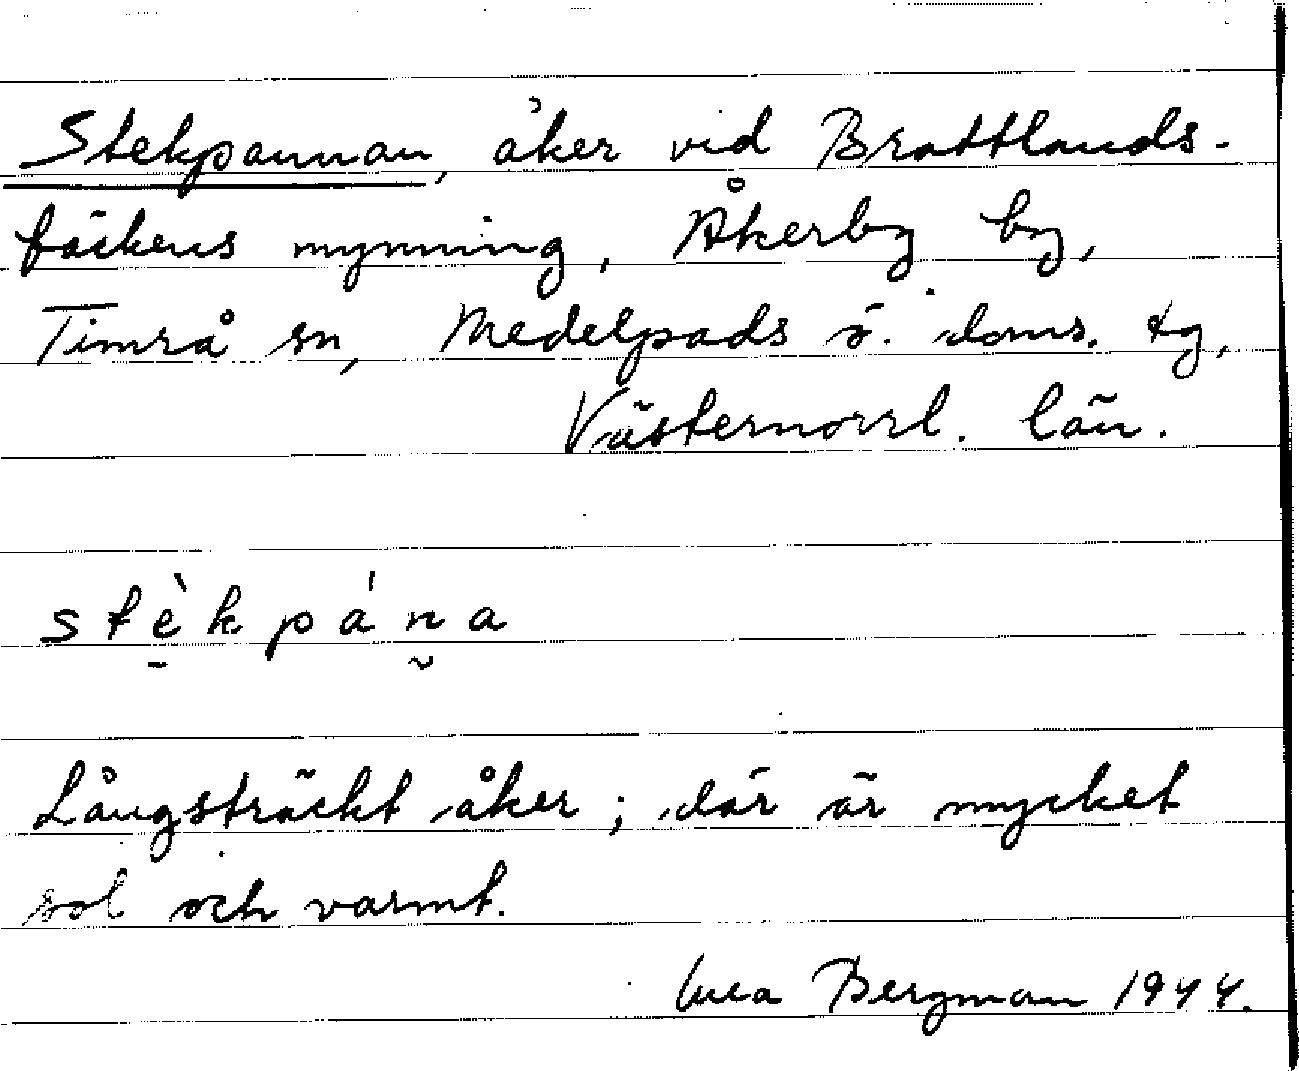 Stekpannan, åker vid Brattlands-
bäckens mynning, Åkerby by,
Timrå sn, Medelpads ö. doms. tg,
Västernorrl. län.
stè̠kpán̰a
Långsträckt åker; där är mycket
sol och varmt.
Bergman 1944.